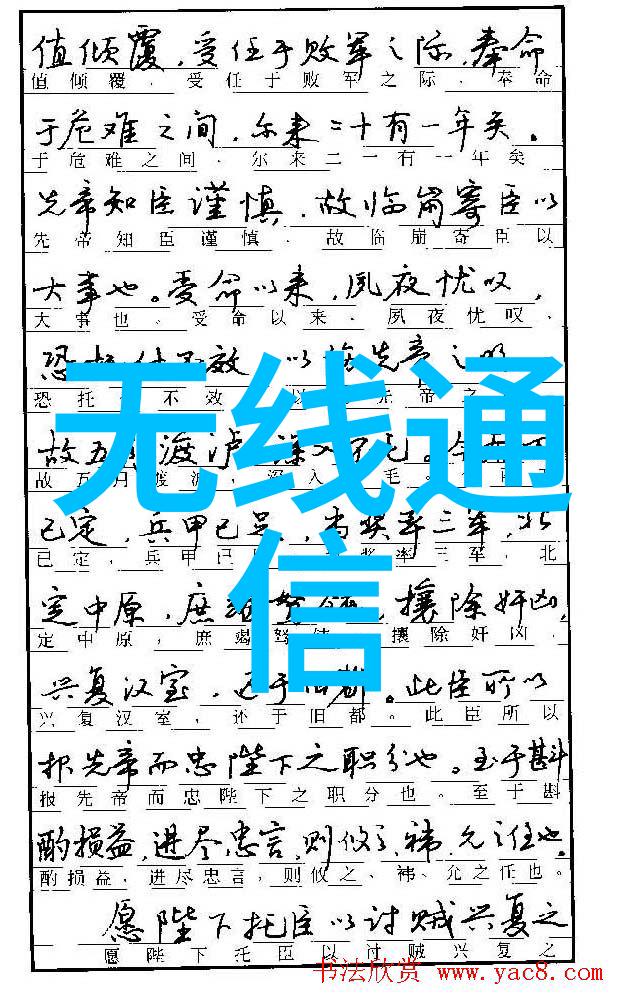 值倾覆,受任于败军之际,奉命
值倾覆,受任于败军之际,奉命
于危难之间,尔来二十有一年矣。
于危难之间,尔来二一有一年矣
先帝知臣谨慎,故临崩寄臣以
先帝知臣谨慎,故临崩寄臣以
大事也。受命以来,夙夜忧叹,
大事也。受命以来,夙夜忧叹,
恐 不效 以 先帝之
恐托 不效 以 先帝之
无线通
故五 渡泸 深入不毛。今
故五月渡 深入 毛。
已定,兵甲已足,当奖率三军,北
已定,兵甲已 奖率三军,北
信
定中原,庶 驽 攘除奸凶,
定中原,庶竭驽 攘除奸凶,
兴复汉室,还于旧都。此臣所以
兴复汉室,还于旧都。此臣所以
报先帝而忠陛下之职分也。至于斟
报先帝而忠陛下之职分也。至于斟
酌损益,进尽忠言,则攸之、祎、允之任也。
酌损益,进尽忠言,则攸之、祎、允之任也。
愿陛下托臣以讨贼兴复之
愿陛下托臣以讨贼兴复之
书法欣赏 www.yac8.com